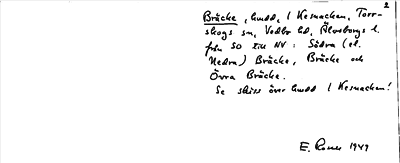 2
Bräcke, hmdd, i Kesnacken, Torr-
skogs sn, Vedbo hd, Älvsborgs l.
från SO till NV: Södra (el.
Nedra) Bräcke, Bräcke och
Övra Bräcke.
Se skiss över hmdd i Kesnacken!
E. 1949